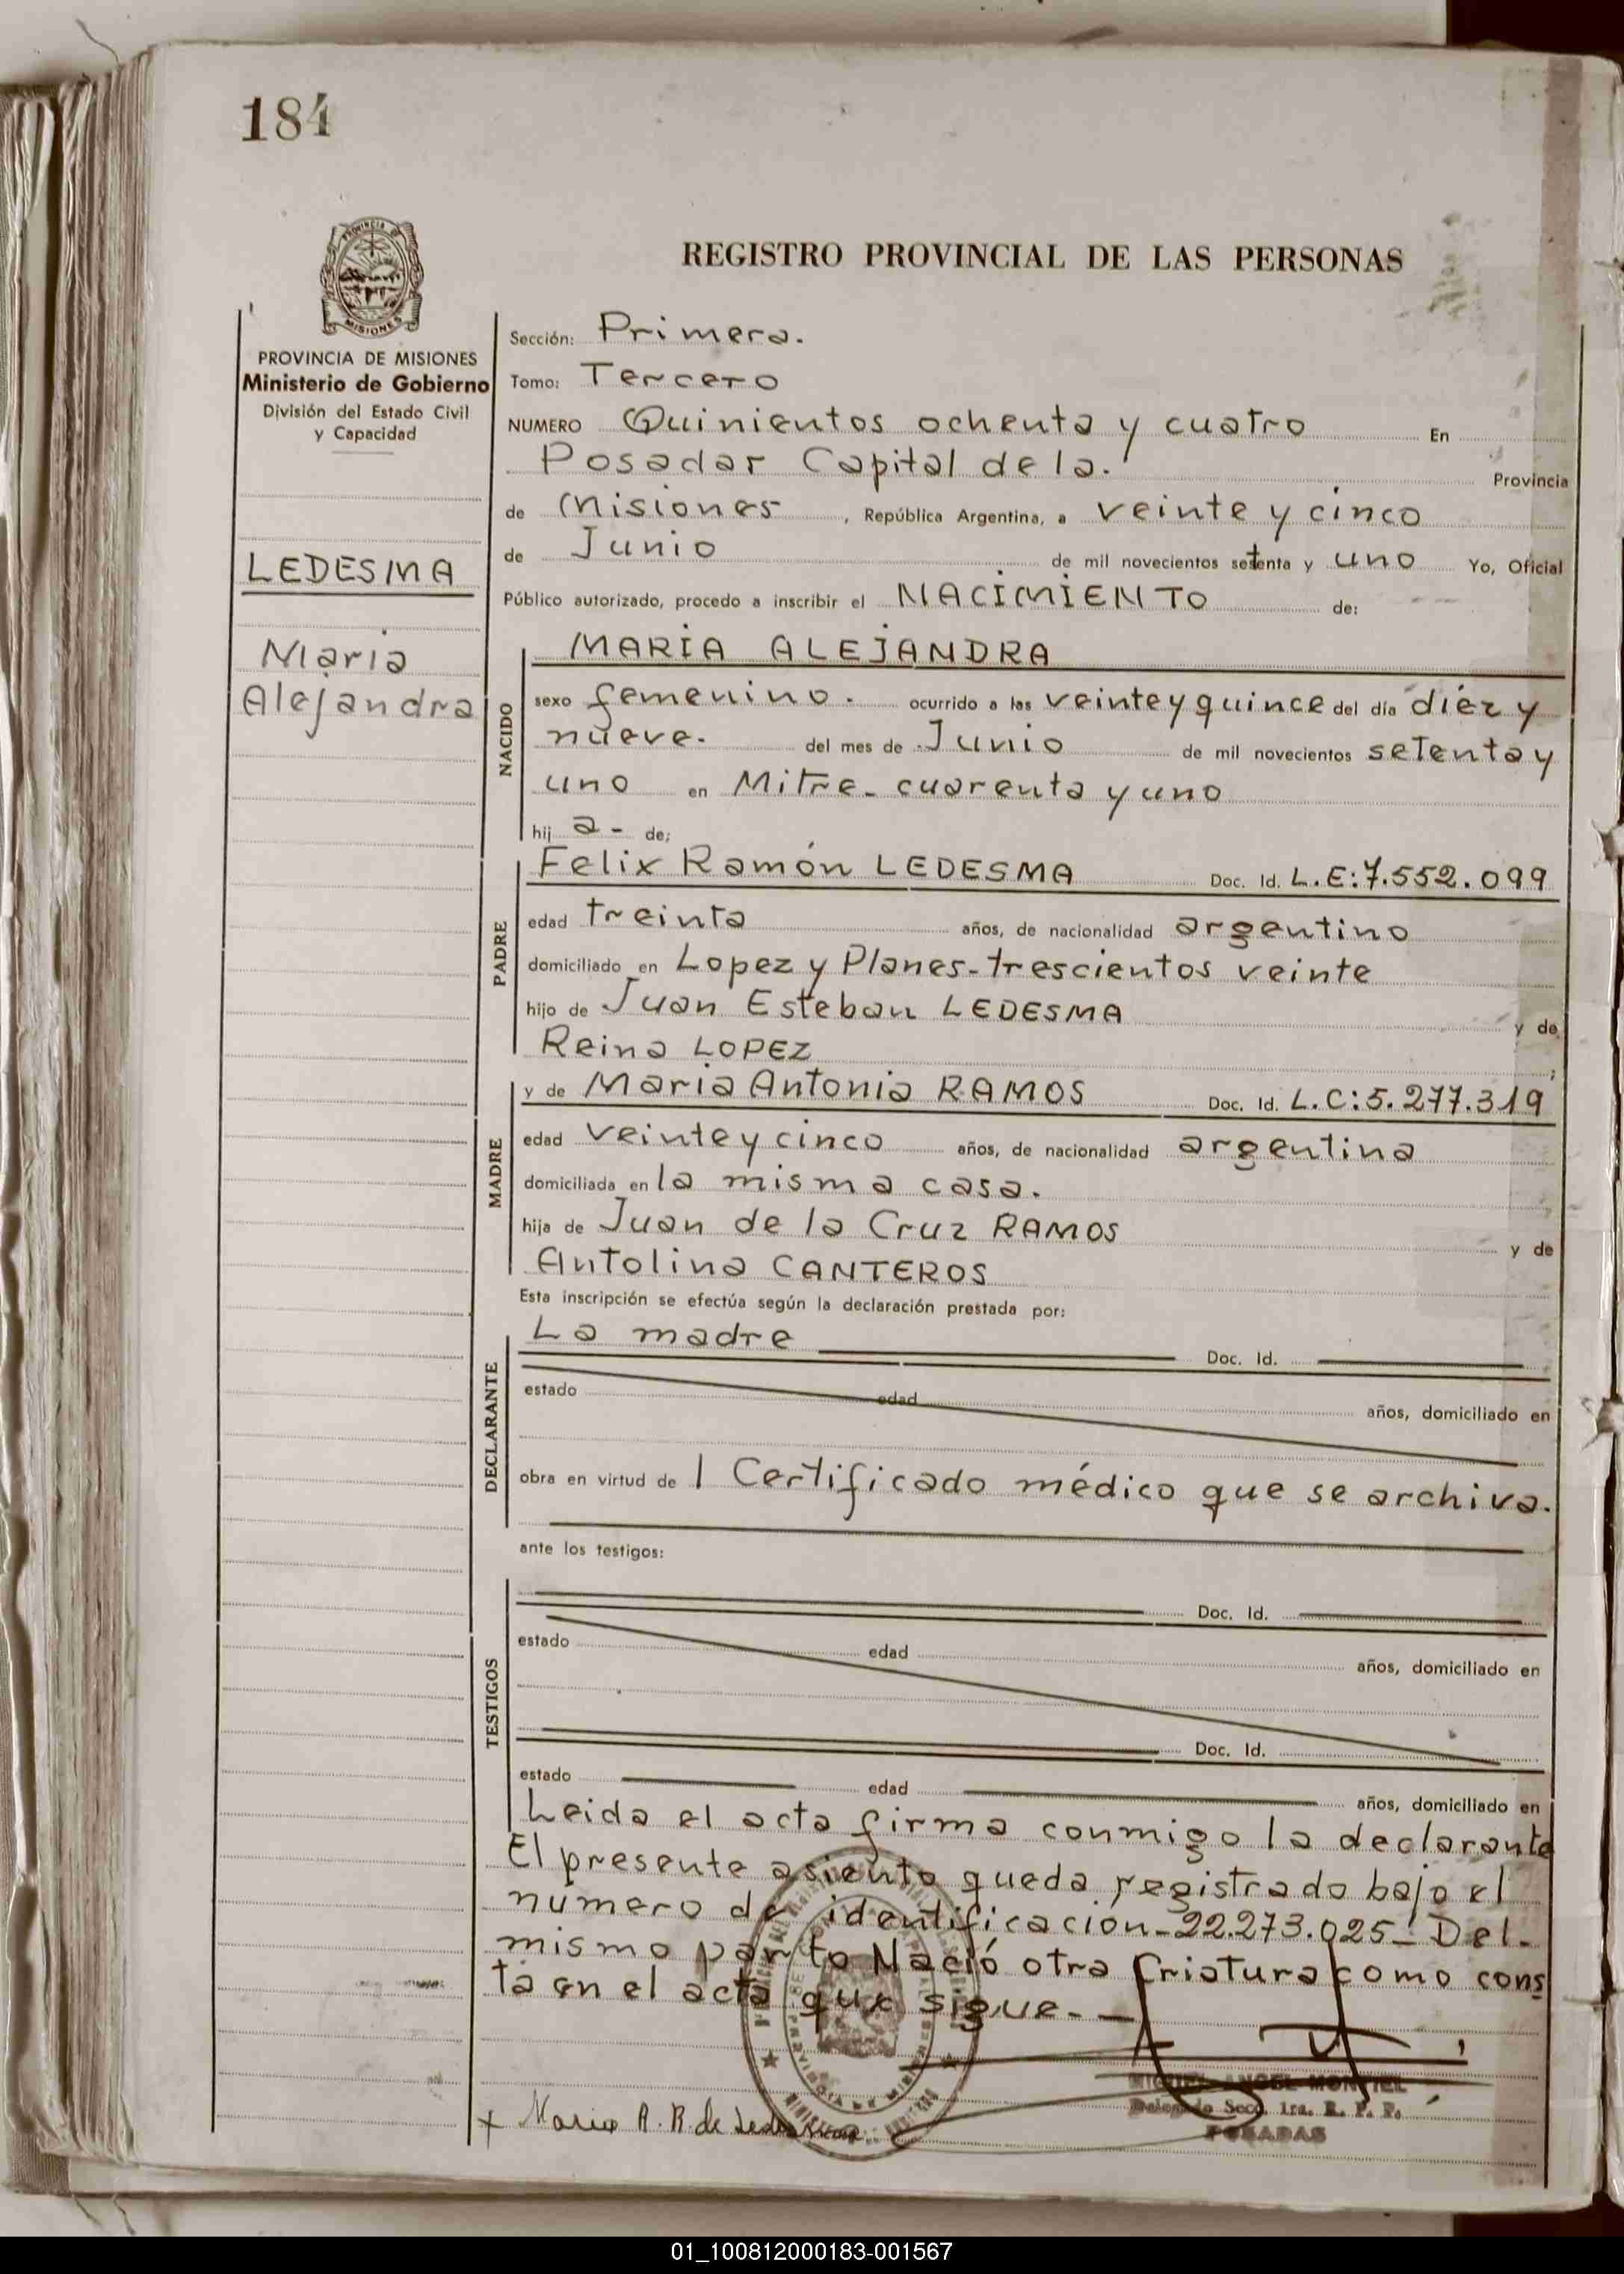 184
REGISTRO PROVINCIAL DE LAS PERSONAS
PROVINCIA DE
MISIONES
PROVINCIA DE MISIONES
Ministerio de Gobierno
División del Estado Civil
y Capacidad
LEDESMA
Maria
Alejandra
Sección: Primera.
Tomo: Tercero
NUMERO Quinientos ochenta y cuatro En
Posadas Capital de la. Provincia
de Misiones, República Argentina, a veinte y cinco
de Junio de mil novecientos setenta y uno Yo, Oficial
Público autorizado, procedo a inscribir el NACIMIENTO de:
MARIA ALEJANDRA
NACIDO
sexo femenino. ocurrido a las veinte y quince del día diéz y
nueve. del mes de Junio de mil novecientos setenta y
uno en Mitre - cuarenta y uno
hij a- de:
PADRE
Felix Ramón LEDESMA Doc. Id. L.E: 7.552.099
edad treinta años, de nacionalidad argentino
domiciliado en Lopez y Planes - trescientos veinte
hijo de Juan Esteban LEDESMA y de
Reina LOPEZ ;
MADRE
y de Maria Antonia RAMOS Doc. Id. L.C: 5.277.319
edad veinte y cinco años, de nacionalidad argentina
domiciliada en la misma casa.
hija de Juan de la Cruz RAMOS y de
Antolina CANTEROS
Esta inscripción se efectúa según la declaración prestada por:
DECLARANTE
La madre Doc. Id.
estado edad años, domiciliado en
obra en virtud de 1 Certificado médico que se archiva.
ante los testigos:
TESTIGOS
Doc. Id.
estado edad años, domiciliado en
Doc. Id.
estado edad años, domiciliado en
Leida el acta firma conmigo la declarante
El presente asiento queda registrado bajo el
número de identificación - 22.273.025 - Del -
mismo parto Nació otra Criatura como cons
ta en el acta que sigue. -
MIGUEL ANGEL MONTIEL
Delegado Secc. 1ra. R. P. P.
POSADAS
x Maria A. R. de Ledesma
01_100812000183-001567